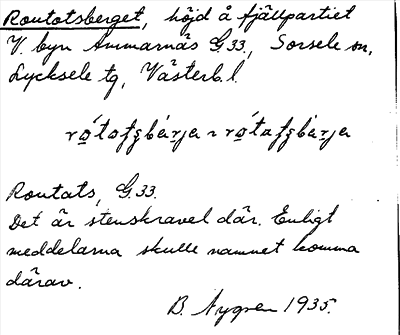 Routotsberget, höjd å fjällpartiet
V. byn Ammarnäs G.33., Sorsele sn,
Lycksele tg, Västerb.l.
Routats, G.33.
Det är stenskravel där. Enligt
meddelarna skulle namnet komma
därav.
B. Nygren 1935.